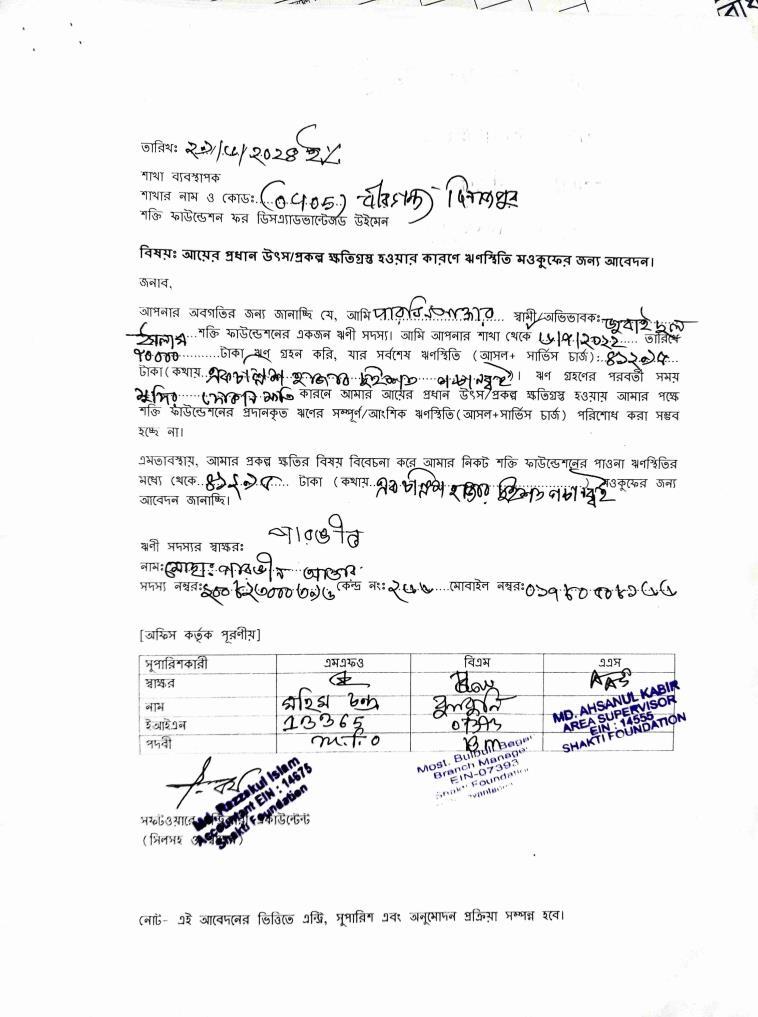 তারিখঃ
শাখা ব্যবস্থাপক
শাখার নাম ও কোডঃ (0705) বীরগঞ্জ দিনাজপুর
শক্তি ফাউন্ডেশন ফর ডিসএ্যাডভান্টেজড উইমেন
বিষয়ঃ আয়ের প্রধান উৎস/প্রকল্প ক্ষতিগ্রস্থ হওয়ার কারণে ঋণস্থিতি মওকুফের জন্য আবেদন।
জনাব,
আপনার অবগতির জন্য জানাচ্ছি যে, আমি স্বামী/অভিভাবকঃ
শক্তি ফাউন্ডেশনের একজন ঋণী সদস্য। আমি আপনার শাখা থেকে তারিখে
৭০০০০ টাকা ঋণ গ্রহন করি, যার সর্বশেষ ঋণস্থিতি (আসল+ সার্ভিস চার্জ): ৪১২৯৫
টাকা (কথায় একচল্লিশ হাজার দুইশত পচানব্বই)। ঋণ গ্রহণের পরবর্তী সময়
কারনে আমার আয়ের প্রধান উৎস/প্রকল্প ক্ষতিগ্রস্থ হওয়ায় আমার পক্ষে
শক্তি ফাউন্ডেশনের প্রদানকৃত ঋণের সম্পূর্ণ/আংশিক ঋণস্থিতি (আসল+সার্ভিস চার্জ) পরিশোধ করা সম্ভব
হচ্ছে না।
এমতাবস্থায়, আমার প্রকল্প ক্ষতির বিষয় বিবেচনা করে আমার নিকট শক্তি ফাউন্ডেশনের পাওনা ঋণস্থিতির
মধ্যে থেকে ৪১২৯৫ টাকা (কথায় একচল্লিশ হাজার দুইশত পচানব্বই) মওকুফের জন্য
আবেদন জানাচ্ছি।
ঋণী সদস্যের স্বাক্ষরঃ পারভীন
নামঃ মোছাঃ পারভীন আক্তার
সদস্য নম্বরঃ কেন্দ্র নং: মোবাইল নম্বরঃ
[অফিস কর্তৃক পূরণীয়]
সুপারিশকারী এমএফও বিএম এএস
স্বাক্ষর
নাম মহিম চন্দ্র বুলবুলি
ইআইএন 13365 07393
পদবী M.F.O B.M
MD. AHSANUL KABIR
AREA SUPERVISOR
EIN : 14555
SHAKTI FOUNDATION
Most. Bulbuli Begum
Branch Manager
EIN-07393
Shakti Foundation
Md. Razzakul Islam
Accountant EIN : 14675
Shakti Foundation
সফটওয়ারে একাউন্টেন্ট
(সিলসহ
নোট- এই আবেদনের ভিত্তিতে এন্ট্রি, সুপারিশ এবং অনুমোদন প্রক্রিয়া সম্পন্ন হবে।